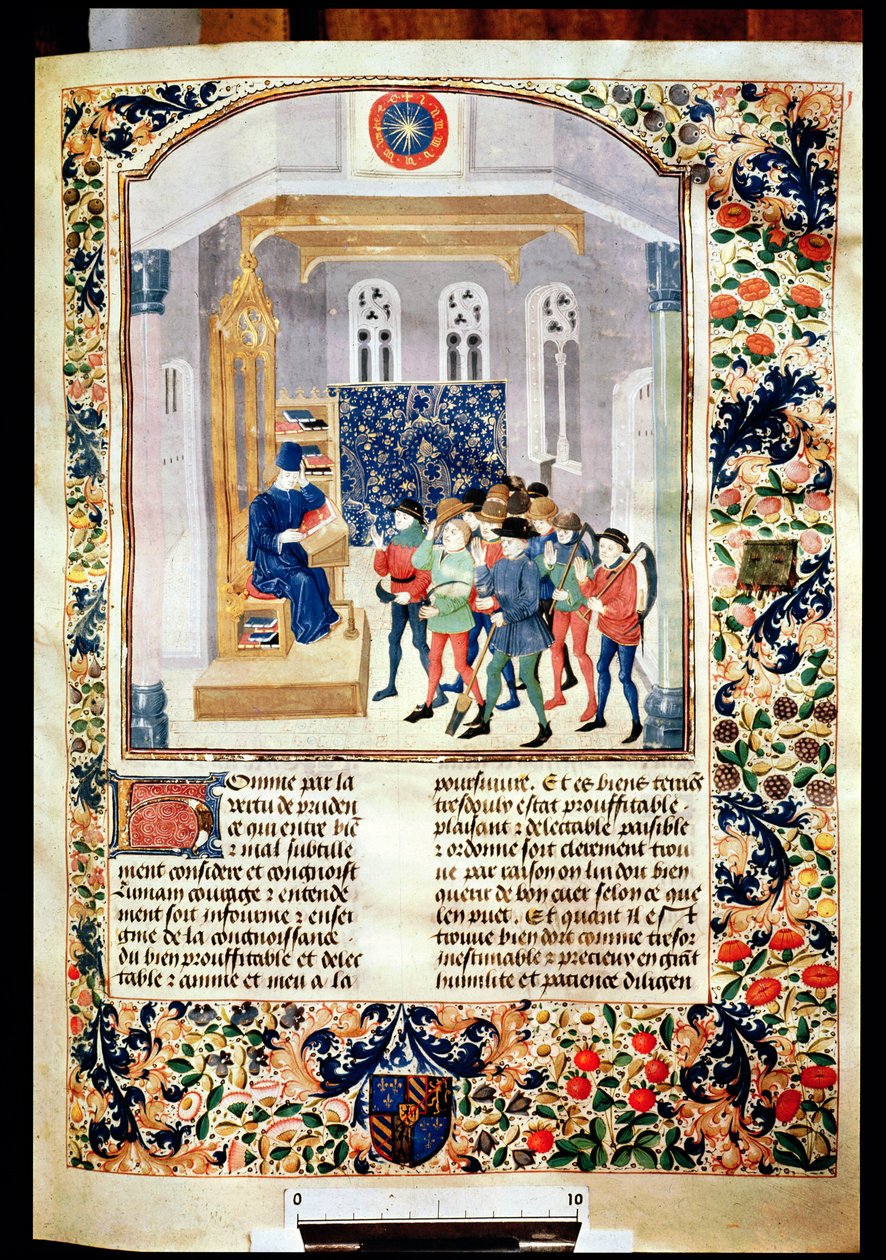 0mme par la
vertu de pruden
ce qui entre biē
⁊ mal subtille
ment considere et congnoist
Lumain courage ⁊ entende
ment soit jnfourme ⁊ ensei
gnie de la congnoissance
du bien prouffitable et delec
table ⁊ amme et meu a la
poursuiure. Et es biens terriēs
tresdoulx estat prouffitable
plaisant ⁊ delectable paisible
⁊ ordonne soit clerement trou
ue par raison on lui doit bien
querir de bon cuer selon ce que
len puet. Et quant il est
trouue bien doit comme tresor
jnestimable ⁊ precieux en grāt
humilite et pacience diligen
0 10